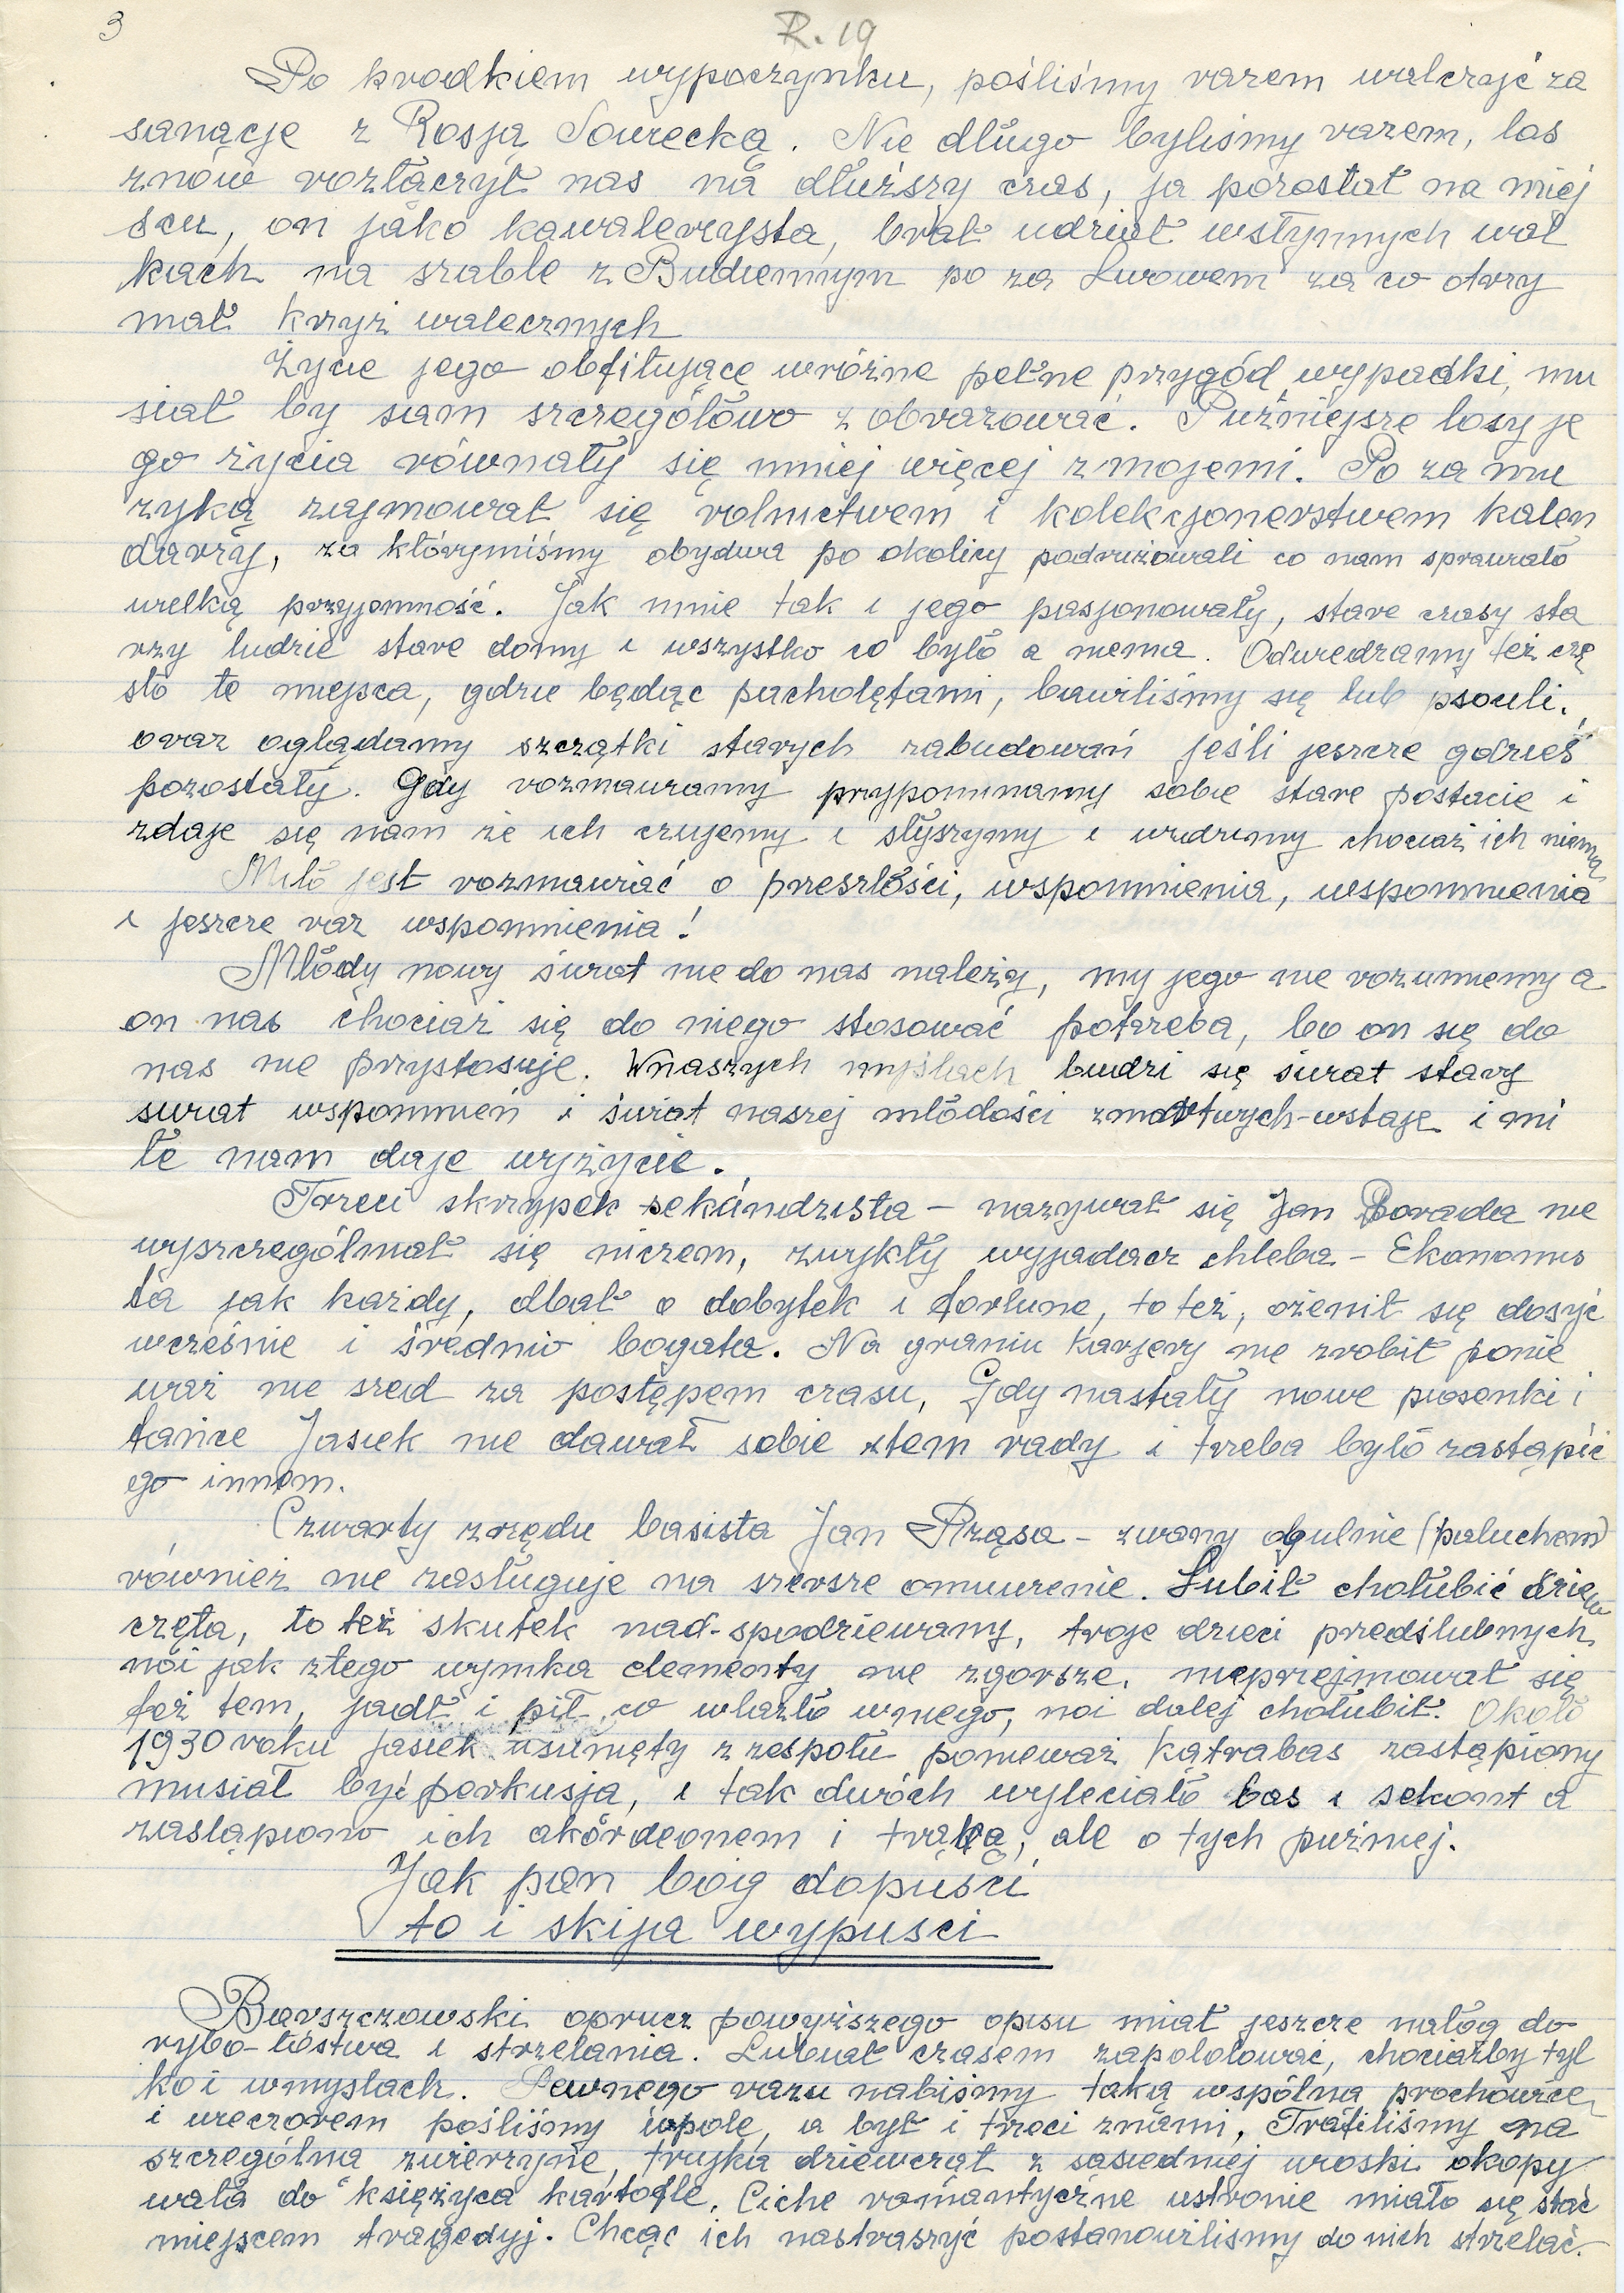 3
R. 19
Po krodkiem wypoczynku, pośliśmy razem walczyć za
sanącję z Rosją Sowiecką. Nie długo byliśmy razem, los
znów rozłączył nas na dłuższy czas, ja pozostał na miej
scu, on jako kawalerzysta, brał udział wstynnych wal
kach na szable z Budiennym po za Lwowem za co otrzy
mał krzyż walecznych
Życie jego obfitujące wróżne pełne przygód wypadki, mu
siał by sam szczegółowo z obrazować. Puźniejsze losy je
go życia równały się mniej więcej z mojemi. Po za mu
zyką zajmował się rolnictwem i kolekcjonerstwem kalen
darzy, za którymiśmy obydwa po okolicy podrużowali co nam sprawiało
wielką przyjomność. Jak mnie tak i jego pasjonowały, stare czasy sta
rzy ludzie stare domy i wszystko co było a niema. Odwiedzamy też czę
sto te miejsca, gdzie będąc pacholętami, bawiliśmy się lub psouli.
oraz oglądamy szczątki starych zabudowań jeśli jeszcze gdzieś
pozostały. Gdy rozmawiamy przypominamy sobie stare postacie i
zdaje się nam że ich czujemy i słyszymy i widzimy chociaż ich niema
Miło jest rozmawiać o przeszłości, wspomnienia, wspomnienia
i jeszcze raz wspomnienia!
Młody nowy świat nie do nas należy, my jego nie rozumiemy a
on nas chociaż się do niego stosować potrzeba, bo on się do
nas nie przystosuje. Wnaszych myślach budzi się świat stary
świat wspomnień i świat naszej młodości zmartwych-wstaje i mi
łe nam daje wyżycie.
Trzeci skrzypek sekándzista – nazywał się Jan Porada nie
wyszczególniał się niczem, zwykły wyjadacz chleba – Ekonomis
ta jak każdy, dbał o dobytek i fortune, to też, ożenił się dosyć
wcześnie i średnio bogata. Na graniu karjery nie zrobił ponie
waż nie szed za postępem czasu, Gdy nastały nowe piosenki i
tańce Jasiek nie dawał sobie ztem rady i trzeba było zastąpić
go innem.
Czwarty zrzędu basista Jan Prząsa – zwany ogulnie (paluchem)
również nie zasługuje na szersze omuwienie. Lubił chołubić dziew
częta, to też skutek nad-spodziewany, troje dzieci przedślubnych,
nói jak złego wynika elementy nie zgorsze. nieprzejmował się
też tem, jadł i pił co wlazło wniego, noi dalej chołubił. Około
1930 roku jasiek usunięty z zespołu ponieważ kątrabas zastąpiony
musiał być perkusja, i tak dwóch wyleciało bas i sekont a
zastąpiono ich akórdeonem i trąbą, ale o tych puźniej.
Jak pan bóg dopuści
to i skija wypuści
Barszczowski oprucz powyższego opisu miał jeszcze nałóg do
rybo-łóstwa i strzelania. Lubiał czasem zapololować, chociażby tyl
ko i wmyslach. Pewnego razu nabiśmy taką wspólna prochowice
i wieczorem pośliśmy wpole, a był i trzeci znami, Trafiliśmy na
szczególna zwierzyne, trujka dziewcząt z sąsiedniej wioski okopy
wała do księżyca kartofle. Ciche romantyczne ustronie miało się stać
miejscem tragedyj. Chcąc ich nastraszyć postanowiliśmy do nich strzelać.